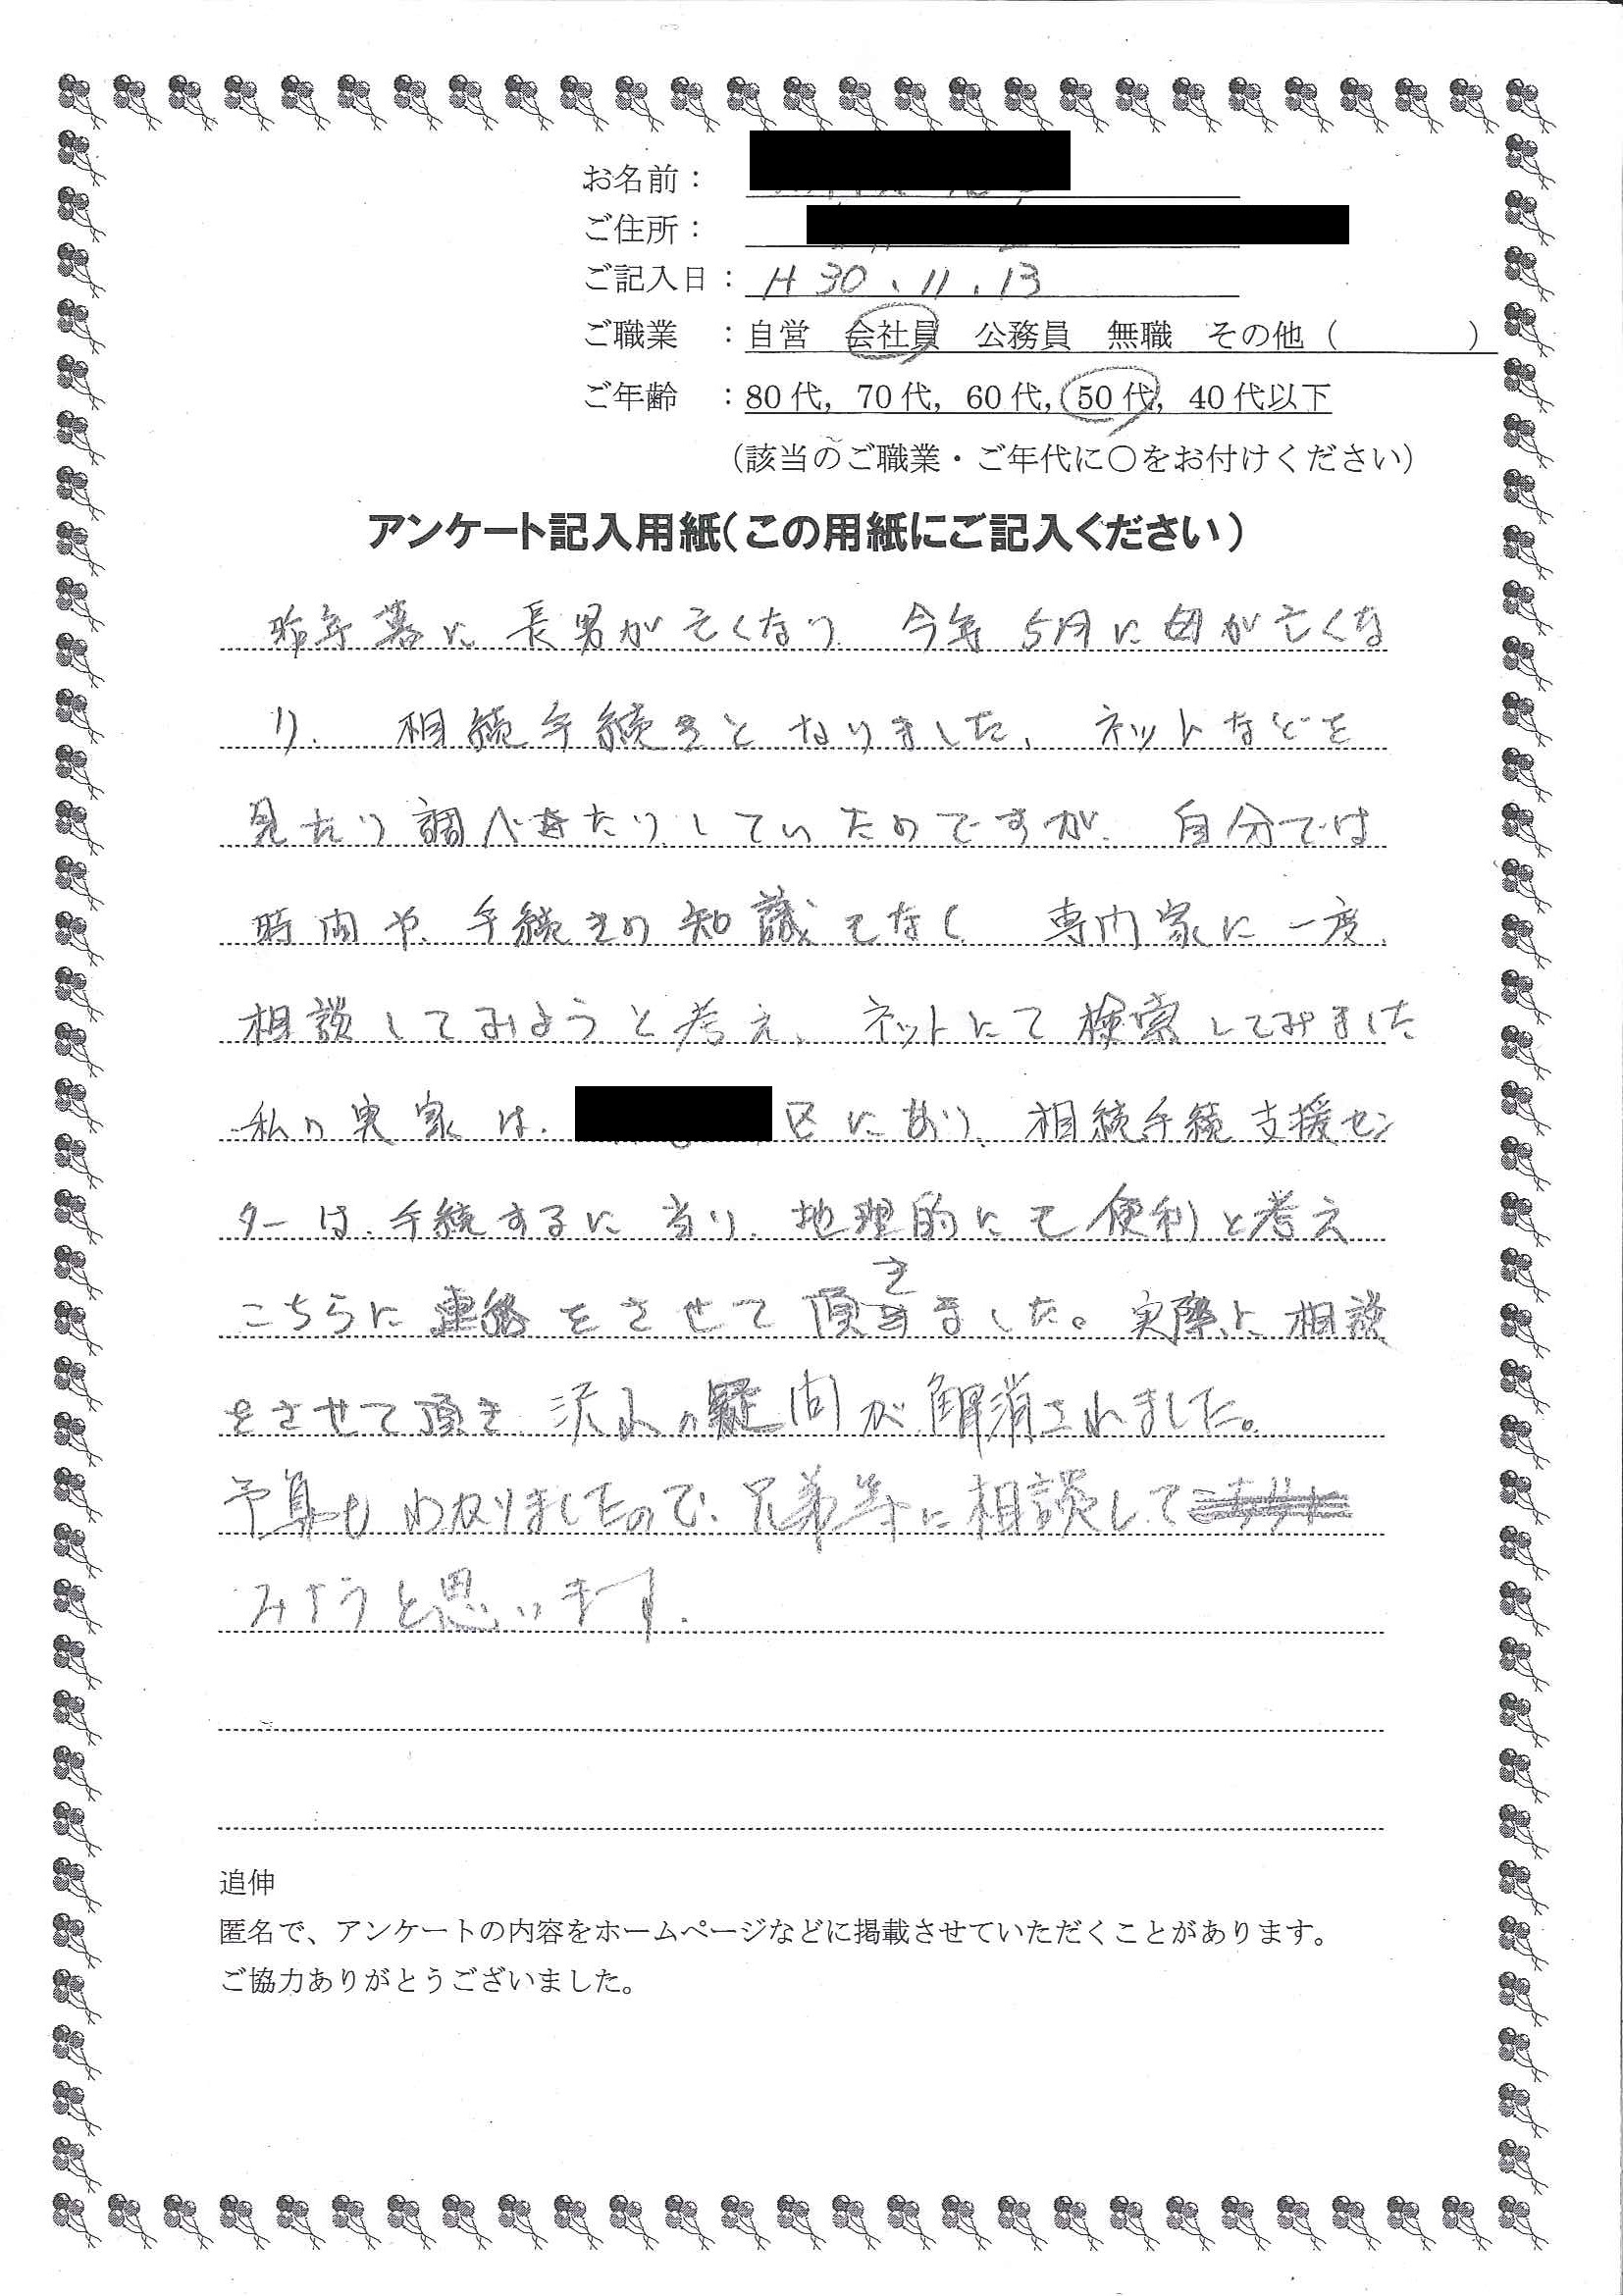 お名前：
ご住所：
ご記入日：H30.11.13
ご職業　：自営　会社員　公務員　無職　その他（　　　　）
ご年齢　：80代，70代，60代，50代，40代以下
（該当のご職業・ご年代に○をお付けください）
アンケート記入用紙（この用紙にご記入ください）
昨年暮に長男が亡くなり、今年5月に母が亡くな
り、相続手続きとなりました、ネットなどを
見たり調べたりしていたのですが、自分では
時間や、手続きの知識もなく、専門家に一度、
相談してみようと考え、ネットにて検索してみました
私の実家は、区にあり、相続手続支援セン
ターは、手続するに当り、地理的にも便利と考え
こちらに連絡をさせて頂きました。実際に相談
をさせて頂き、沢山の疑問が解消されました。
予算もわかりましたので、兄弟等に相談して
みようと思います。
追伸
匿名で、アンケートの内容をホームページなどに掲載させていただくことがあります。
ご協力ありがとうございました。